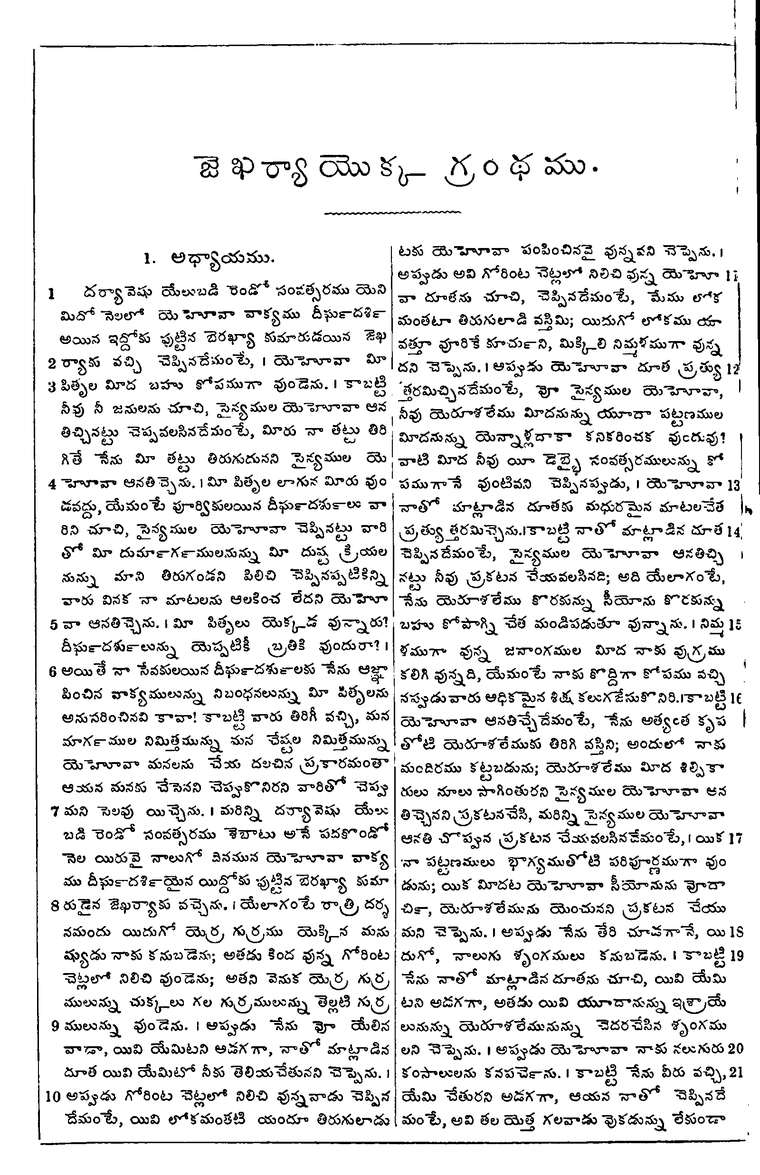 జెఖర్యా యొక్క గ్రంథము.
1. అధ్యాయము.
1 దర్యావెషు యేలుబడి రెండో సంవత్సరము యెని
మిదో నెలలో యెహోవా వాక్యము దీర్ఘదర్శి
అయిన ఇద్దోకు పుట్టిన బెరఖ్యా కుమారుడయిన జెఖ
2 ర్యాకు వచ్చి చెప్పినదేమంటే, । యెహోవా మీ
3 పితృల మీద బహు కోపముగా వుండెను. । కాబట్టి
నీవు నీ జనులను చూచి, సైన్యముల యెహోవా ఆన
తిచ్చినట్టు చెప్పవలసినదేమంటే, మీరు నా తట్టు తిరి
గితే నేను మీ తట్టు తిరుగుదునని సైన్యముల యె
4 హోవా ఆనతిచ్చెను. । మీ పితృల లాగున మీరు వుం
డవద్దు, యేమంటే పూర్వికులయిన దీర్ఘదర్శులు వా
రిని చూచి, సైన్యముల యెహోవా చెప్పినట్టు వారి
తో మీ దుర్మార్గములనున్ను మీ దుష్ట క్రియల
నున్ను మాని తిరుగండని పిలిచి చెప్పినప్పటికిన్ని
వారు వినక నా మాటలను ఆలకించ లేదని యెహో
5 వా ఆనతిచ్చెను. । మీ పితృలు యెక్కడ వున్నారు?
దీర్ఘదర్శులున్ను యెప్పటికీ బ్రతికి వుందురా? ।
6 అయితే నా సేవకులయిన దీర్ఘదర్శులకు నేను ఆజ్ఞా
పించిన వాక్యములున్ను నిబంధనలున్ను మీ పితృలను
అనుసరించినవి కావా! కాబట్టి వారు తిరిగీ వచ్చి, మన
మార్గముల నిమిత్తమున్ను మన చేష్టల నిమిత్తమున్ను
యెహోవా మనలను చేయ దలచిన ప్రకారమంతా
ఆయన మనకు చేసెనని చెప్పుకొనిరని వారితో చెప్పు
7 మని సెలవు యిచ్చెను. । మరిన్ని దర్యావెషు యేలు
బడి రెండో సంవత్సరము శెబాటు అనే పదకొండో
నెల యిరువై నాలుగో దినమున యెహోవా వాక్య
ము దీర్ఘదర్శియైన యిద్దోకు పుట్టిన బెరఖ్యా కుమా
8 రుడైన జెఖర్యాకు వచ్చెను. । యేలాగంటే రాత్రి దర్శ
నమందు యిదుగో యెర్ర గుర్రము యెక్కిన మను
ష్యుడు నాకు కనుబడెను; అతడు కింద వున్న గోరింట
చెట్లలో నిలిచి వుండెను; అతని వెనుక యెర్ర గుర్ర
ములున్ను చుక్కలు గల గుర్రములున్ను తెల్లటి గుర్ర
9 ములున్ను వుండెను. । అప్పుడు నేను వో యేలిన
వాడా, యివి యేమిటని అడగగా, నాతో మాట్లాడిన
దూత యివి యేమిటో నీకు తెలియచేతునని చెప్పెను. ।
10 అప్పుడు గోరింట చెట్లలో నిలిచి వున్నవాడు చెప్పిన
దేమంటే, యివి లోకమంతటి యందూ తిరుగులాడు
టకు యెహోవా పంపించినవై వున్నవని చెప్పెను. ।
అప్పుడు అవి గోరింట చెట్లలో నిలిచి వున్న యెహో 11
వా దూతను చూచి, చెప్పినదేమంటే, మేము లోక
మంతటా తిరుగులాడి వస్తిమి; యిదుగో లోకము యా
వత్తూ వూరికే కూర్చుని, మిక్కిలి నిమ్మళముగా వున్న
దని చెప్పెను. । అప్పుడు యెహోవా దూత ప్రత్యు 12
త్తరమిచ్చినదేమంటే, వో సైన్యముల యెహోవా,
నీవు యెరూశలేము మీదనున్ను యూదా పట్టణముల
మీదనున్ను యెన్నాళ్లదాకా కనికరించక వుందువు?
వాటి మీద నీవు యీ డెబ్భై సంవత్సరములున్ను కో
పముగానే వుంటివని చెప్పినప్పుడు, । యెహోవా 13
నాతో మాట్లాడిన దూతకు మధురమైన మాటలచేత
ప్రత్యుత్తరమిచ్చెను. । కాబట్టి నాతో మాట్లాడిన దూత 14
చెప్పినదేమంటే, సైన్యముల యెహోవా ఆనతిచ్చి
నట్టు నీవు ప్రకటన చేయవలసినది; అది యేలాగంటే,
నేను యెరూశలేము కొరకున్ను సీయోను కొరకున్ను
బహు కోపాగ్ని చేత మండిపడుతూ వున్నాను. । నిమ్మ 15
ళముగా వున్న జనాంగముల మీద నాకు వుగ్రము
కలిగి వున్నది, యేమంటే నాకు కొద్దిగా కోపము వచ్చి
నప్పుడు వారు అధికమైన శిక్ష కలుగజేసుకొనిరి. । కాబట్టి 16
యెహోవా ఆనతిచ్చేదేమంటే, నేను అత్యంత కృప
తోటి యెరూశలేముకు తిరిగి వస్తిని; అందులో నాకు
మందిరము కట్టబడును; యెరూశలేము మీద శిల్పికా
రులు నూలు సాగింతురని సైన్యముల యెహోవా ఆన
తిచ్చెనని ప్రకటనచేసి, మరిన్ని సైన్యముల యెహోవా
ఆనతి చొప్పున ప్రకటన చేయవలసినదేమంటే, । యిక 17
నా పట్టణములు భాగ్యముతోటి పరిపూర్ణముగా వుం
డును; యిక మీదట యెహోవా సీయోనును వూరా
ర్చి, యెరూశలేమును యెంచునని ప్రకటన చేయు
మని చెప్పెను. । అప్పుడు నేను తేరి చూడగానే, యి 18
దుగో, నాలుగు శృంగములు కనుబడెను. । కాబట్టి 19
నేను నాతో మాట్లాడిన దూతను చూచి, యివి యేమి
టని అడగగా, అతడు యివి యూదానున్ను ఇశ్రాయే
లునున్ను యెరూశలేమునున్ను చెదరచేసిన శృంగము
లని చెప్పెను. । అప్పుడు యెహోవా నాకు నలుగురు 20
కంసాలులను కనపర్చెను. । కాబట్టి నేను వీరు వచ్చి, 21
యేమి చేతురని అడగగా, ఆయన నాతో చెప్పినదే
మంటే, అవి తల యెత్త గలవాడు వొకడున్ను లేకుండా